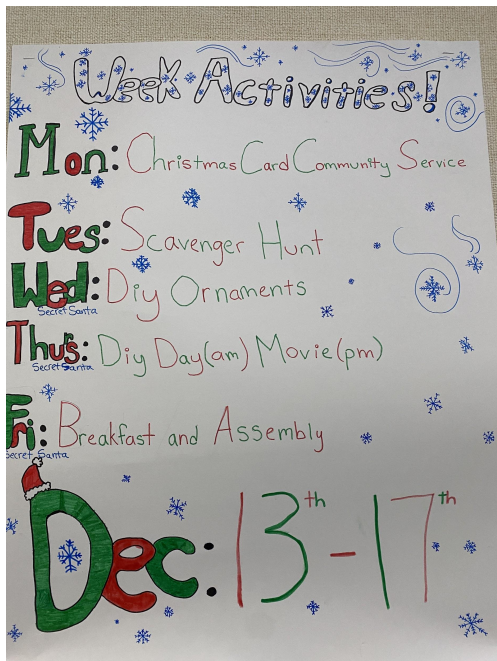 Week Activities!
Mon: Christmas Card Community Service
Tues: Scavenger Hunt
Wed: Diy Ornaments
Secret Santa
Thurs: Diy Day(am) Movie(pm)
Secret Santa
Fri: Breakfast and Assembly
Secret Santa
Dec: 13th - 17th